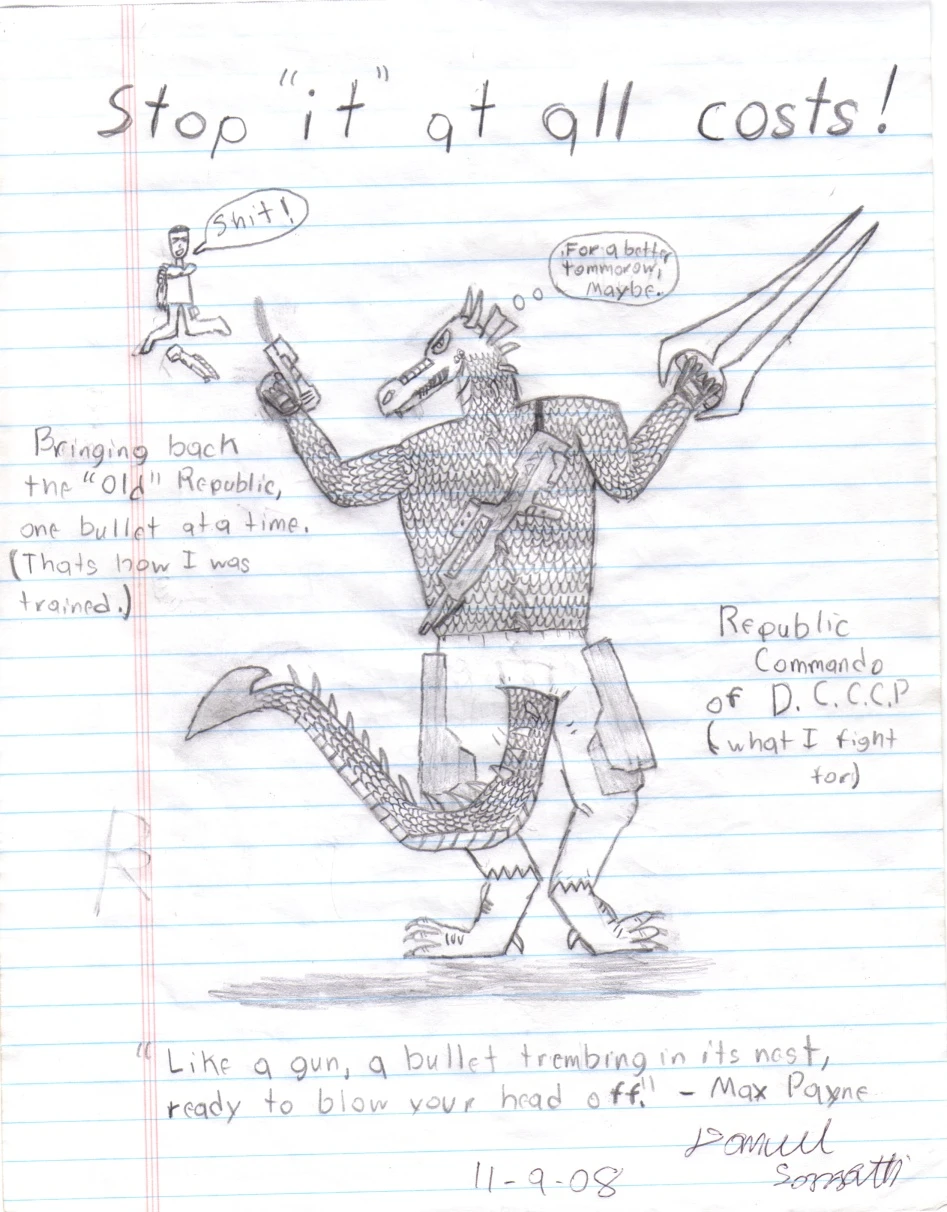 Stop "it" at all costs!
Shit!
For a better
tommorow,
Maybe.
Bringing back
the "Old" Republic,
one bullet at a time.
(Thats how I was
trained.)
Republic
Commando
of D.C.C.C.P
(what I fight
for)
R
"Like a gun, a bullet trembing in its nest,
ready to blow your head off." - Max Payne
11-9-08